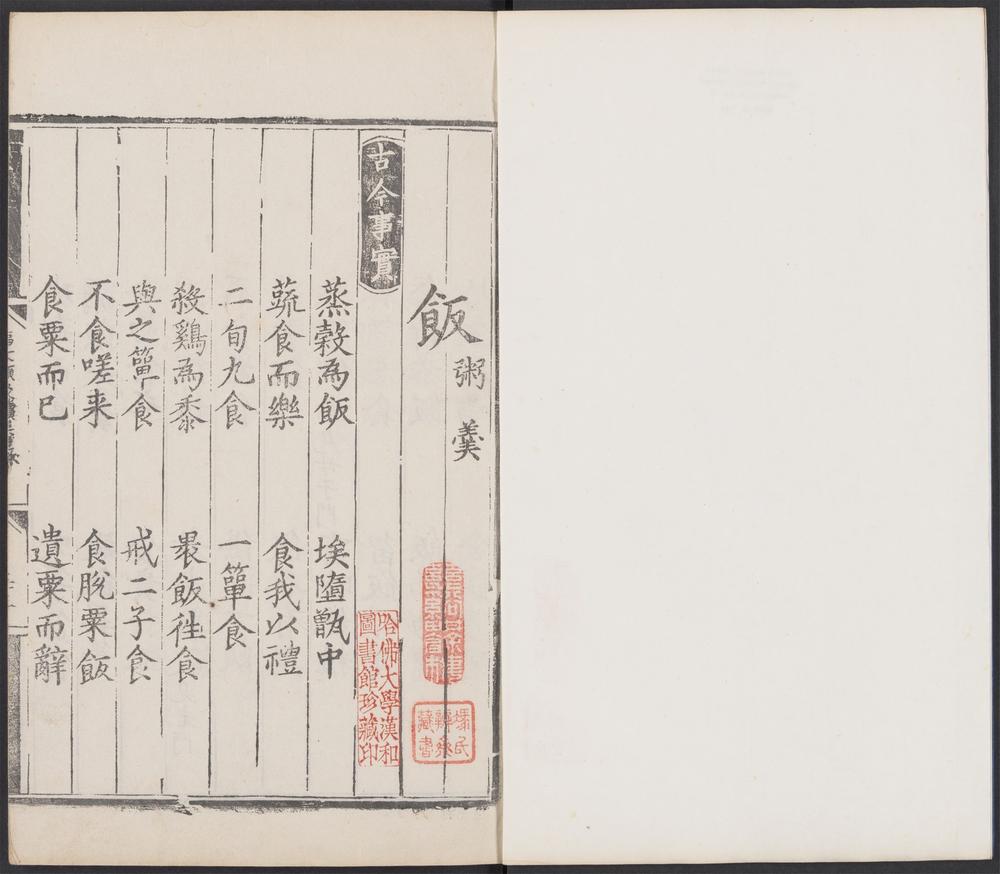 飯 粥 羹
古今事實
蒸穀為飯 埃墮甑中
蔬食而樂 食我以禮
二旬九食 一簞食
殺鷄為黍 裹飯徃食
與之簞食 戒二子食
不食嗟来 食脫粟飯
食粟而已 遺粟而辭
哈佛大學漢和
圖書館珍藏印